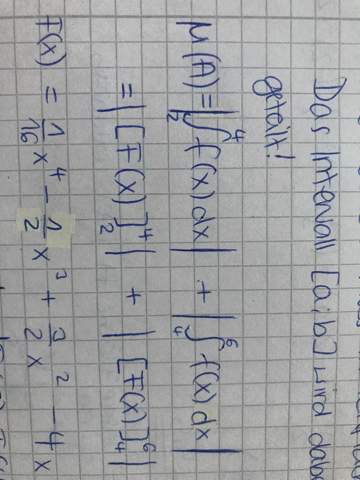 Das Intervall [a;b] wird dabei
geteilt!
μ(A) = |∫₂⁴ f(x) dx| + |∫₄⁶ f(x) dx|
= |[F(x)]₂⁴| + |[F(x)]₄⁶|
F(x) = 1/16 x⁴ - 1/2 x³ + 3/2 x² - 4x